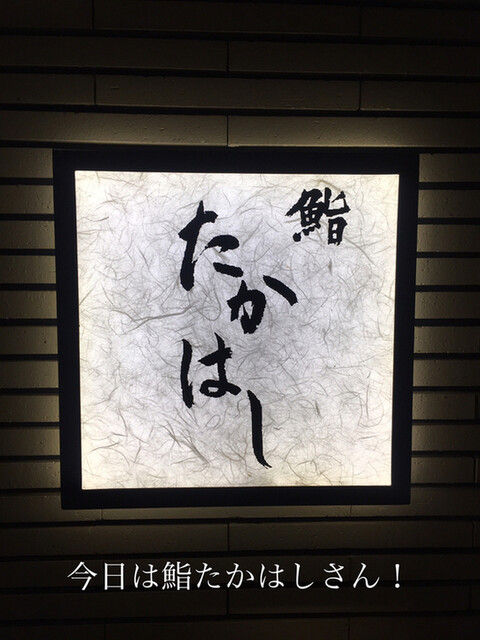 鮨
たかはし
今日は鮨たかはしさん！